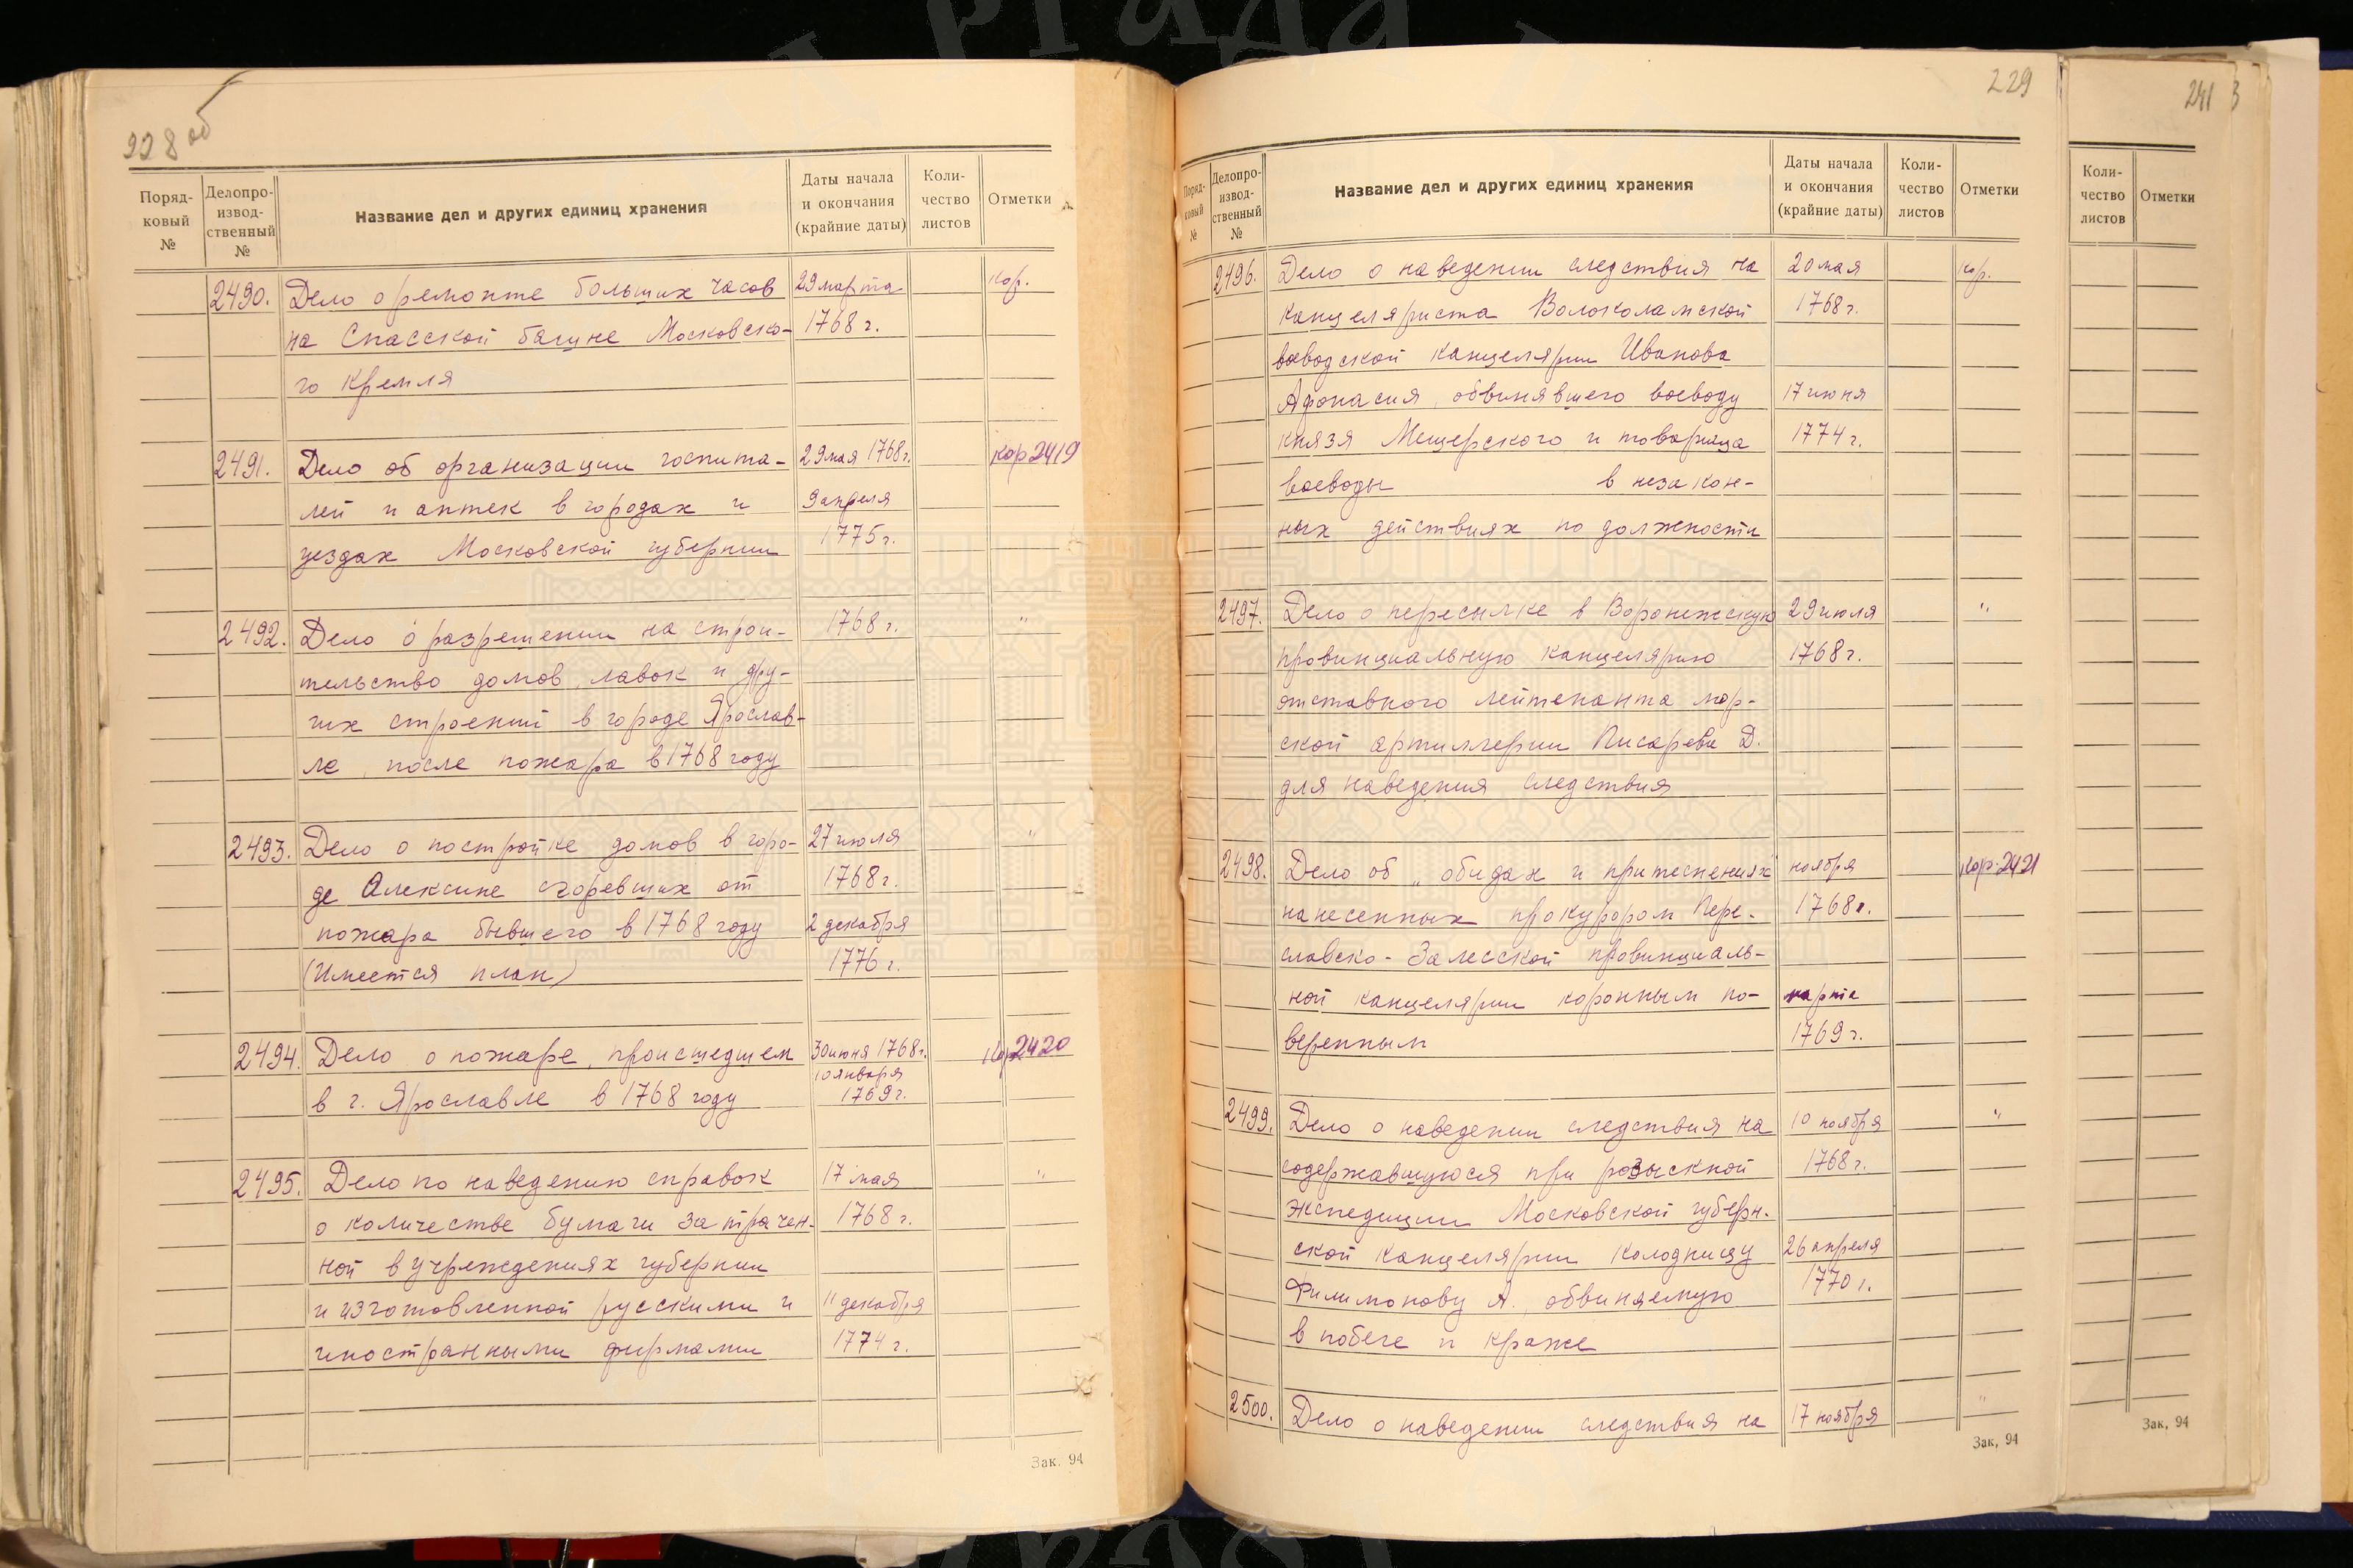 228 об
Поряд-
ковый
№
Делопро-
извод-
ственный
№
Название дел и других единиц хранения
Даты начала
и окончания
(крайние даты)
Коли-
чество
листов
Отметки
2490. Дело о ремонте больших часов 29 марта кор.
на Спасской башне Московско- 1768 г.
го кремля
2491. Дело об организации госпита- 29 мая 1768 г. кор 2419
лей и аптек в городах и 9 апреля
уездах Московской губернии 1775 г.
2492. Дело о разрешении на строи- 1768 г. "
тельство домов, лавок и дру-
гих строений в городе Ярослав-
ле, после пожара в 1768 году
2493. Дело о постройке домов в горо- 27 июля "
де Алексине сгоревших от 1768 г.
пожара бывшего в 1768 году 2 декабря
(Имеется план) 1776 г.
2494. Дело о пожаре, происшедшем 30 июня 1768 г. кор 2420
10 января
в г. Ярославле в 1768 году 1769 г.
2495. Дело по наведению справок 17 мая "
о количестве бумаги затрачен- 1768 г.
ной в учреждениях губернии
и изготовленной русскими и 11 декабря
иностранными фирмами 1774 г.
Зак. 94
229
Поряд-
ковый
№
Делопро-
извод-
ственный
№
Название дел и других единиц хранения
Даты начала
и окончания
(крайние даты)
Коли-
чество
листов
Отметки
2496. Дело о наведении следствия на 20 мая кор.
канцеляриста Волоколамской 1768 г.
воеводской канцелярии Иванова
Афонасия, обвинявшего воеводу 17 июня
князя Мещерского и товарища 1774 г.
воеводы в незакон-
ных действиях по должности
2497. Дело о пересылке в Воронежскую 29 июля "
провинциальную канцелярию 1768 г.
отставного лейтенанта мор-
ской артиллерии Писарева Д.
для наведения следствия
2498. Дело об „обидах и притеснениях" ноября кор. 2421
нанесенных прокурором Пере- 1768 г.
славско-Залесской провинциаль-
ной канцелярии коронным по- марта
веренным 1769 г.
2499. Дело о наведении следствия на 10 ноября "
содержавшуюся при розыскной 1768 г.
экспедиции Московской губерн-
ской канцелярии колодницу 26 апреля
Филимонову А., обвиняемую 1770 г.
в побеге и краже
2500. Дело о наведении следствия на 17 ноября "
Зак. 94
241
3
Коли-
чество
листов
Отметки
Зак. 94